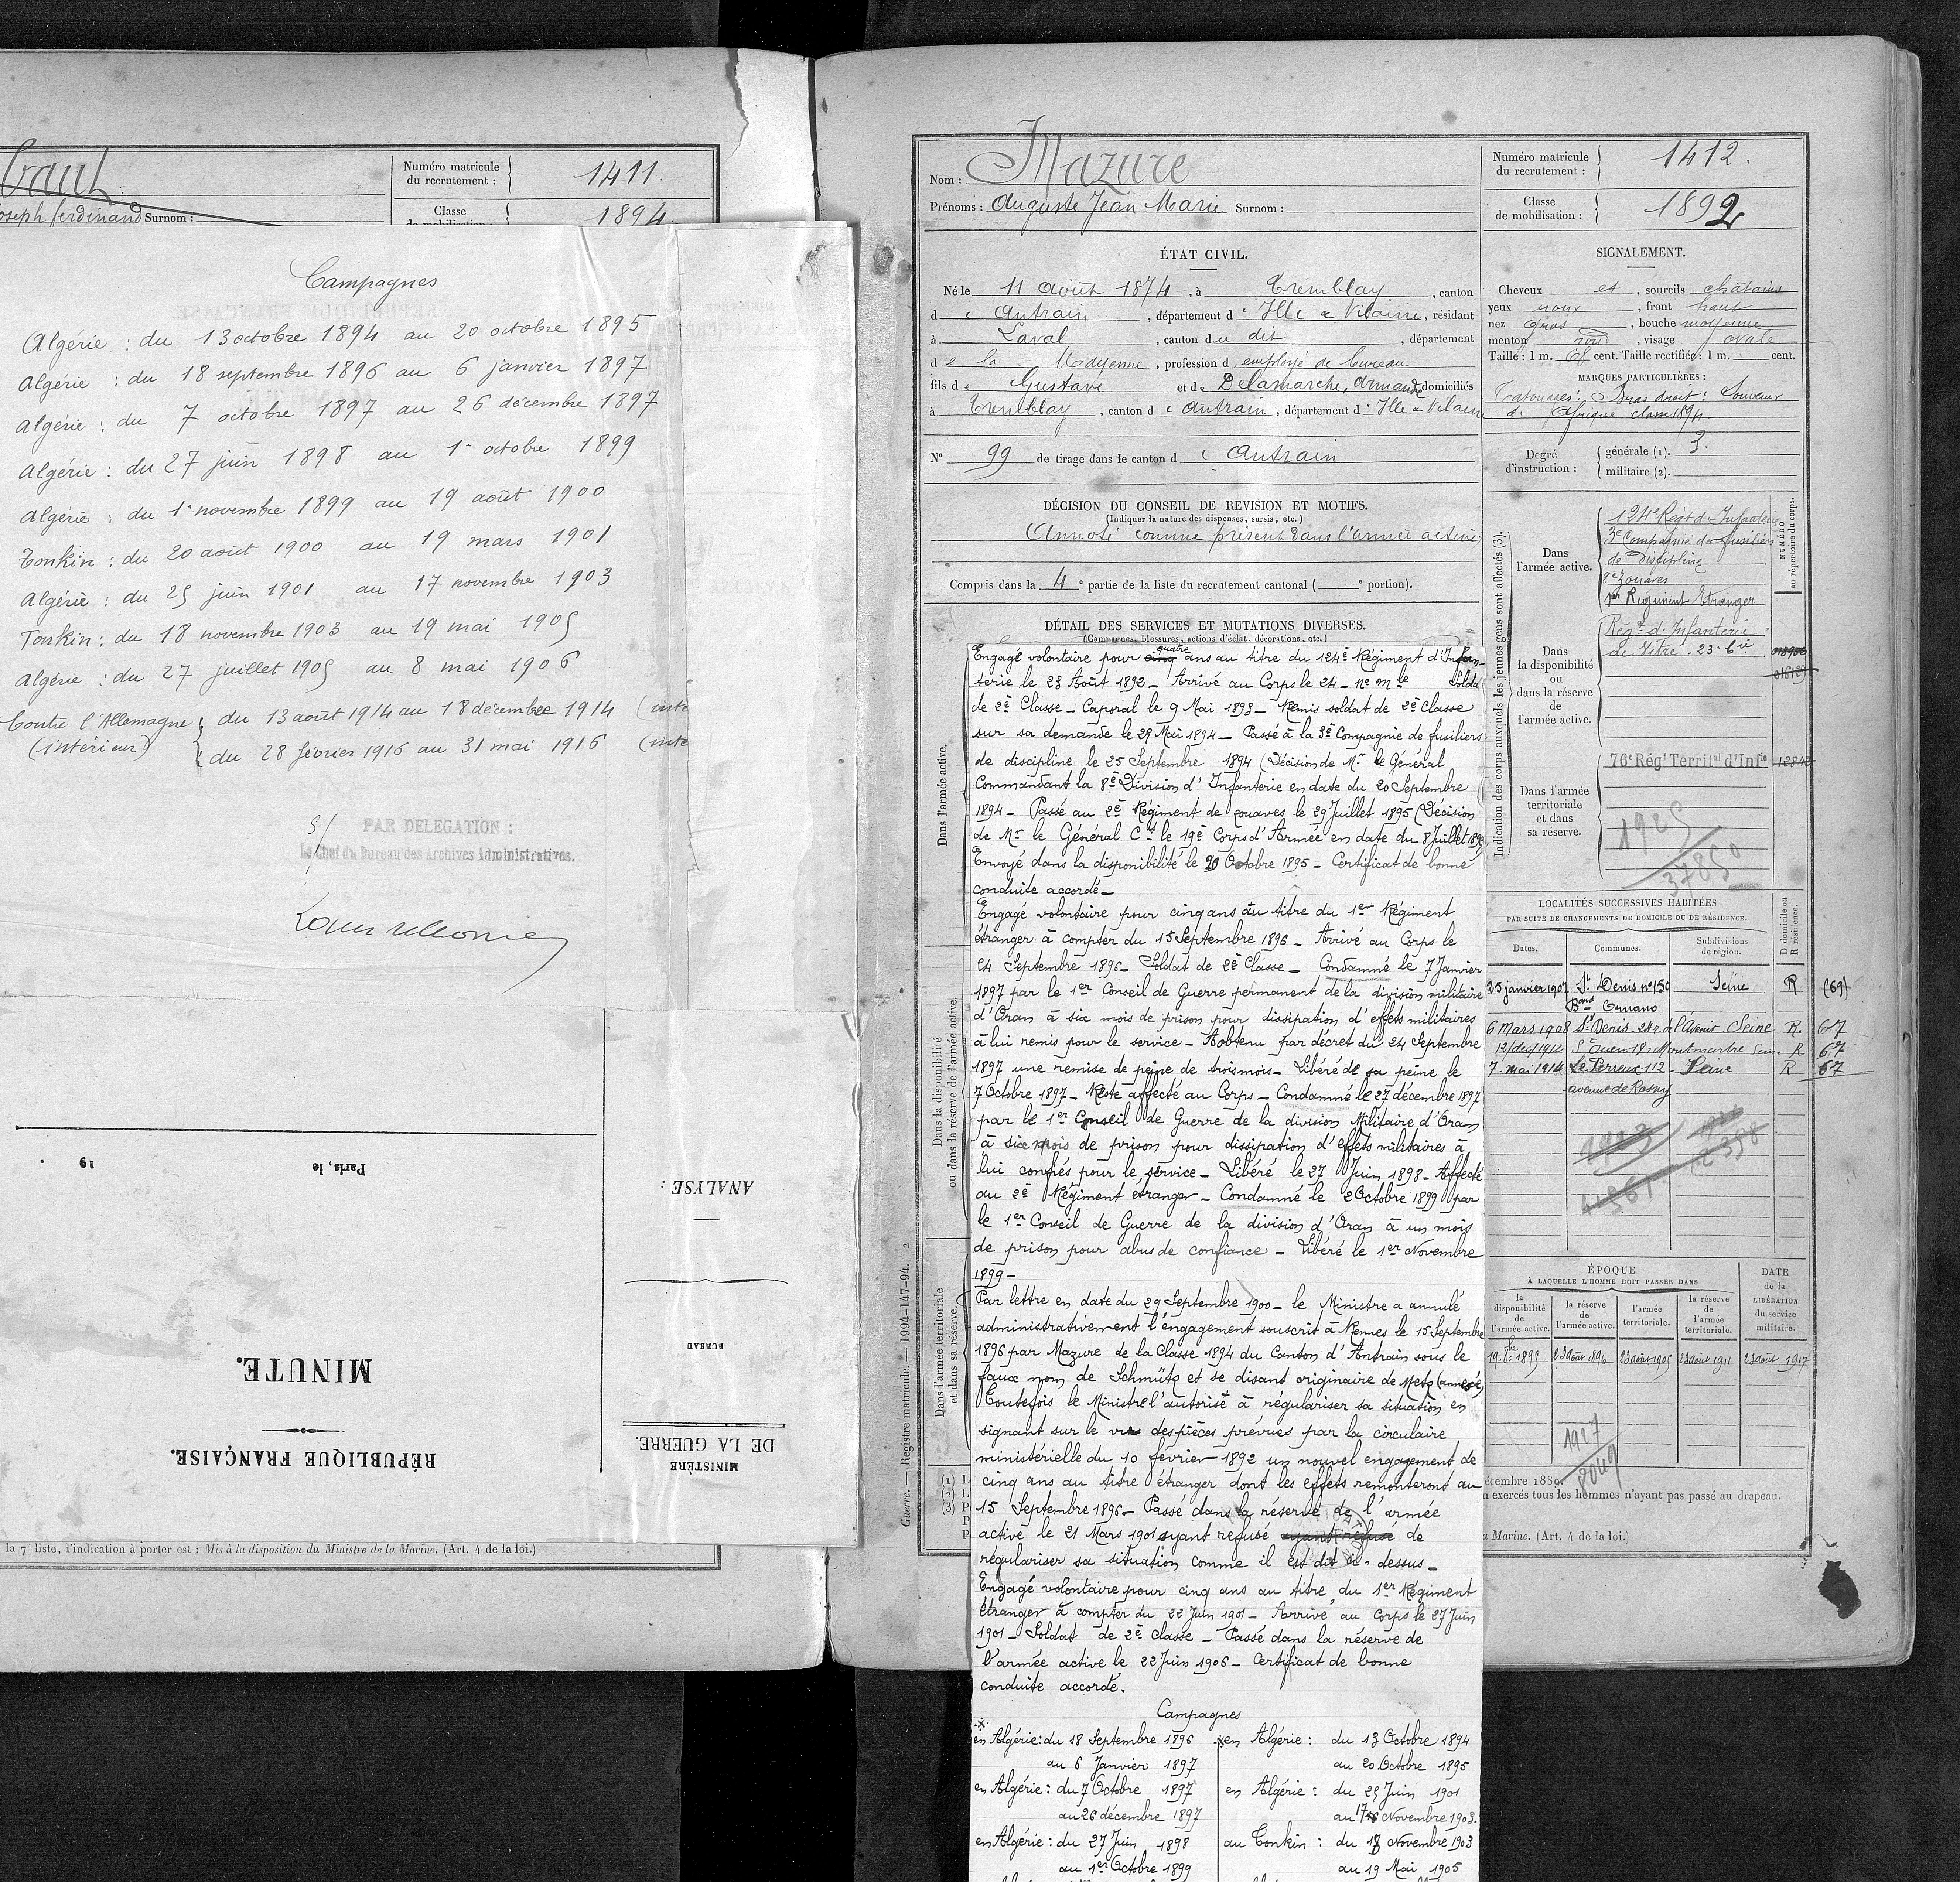 Joseph ferdinand Surnom :
Numéro matricule
du recrutement :
1411.
Classe
1894.
Campagnes
Algérie : du 13 octobre 1894 au 20 octobre 1895
Algérie : du 18 septembre 1896 au 6 janvier 1897
Algérie : du 7 octobre 1897 au 26 décembre 1897
Algérie : du 27 juin 1898 au 1er octobre 1899
Algérie : du 1er novembre 1899 au 19 août 1900
Tonkin : du 20 août 1900 au 19 mars 1901
Algérie : du 25 juin 1901 au 17 novembre 1903
Tonkin : du 18 novembre 1903 au 19 mai 1905
Algérie : du 27 juillet 1905 au 8 mai 1906
Contre l'Allemagne du 13 août 1914 au 18 décembre 1914 (inte
(intérieur) du 28 février 1916 au 31 mai 1916 (inte
PAR DELEGATION :
Le Chef du Bureau des Archives Administratives.
Paris, le 19 .
ANALYSE :
BUREAU
MINUTE.
RÉPUBLIQUE FRANÇAISE.
MINISTÈRE
DE LA GUERRE.
la 7e liste, l'indication à porter est : Mis à la disposition du Ministre de la Marine. (Art. 4 de la loi.)
Guerre. — Registre matricule. — 1994-147-94. 2
Nom : Mazure
Prénoms : Auguste Jean Marie Surnom :
Numéro matricule
du recrutement :
1412.
Classe
de mobilisation :
1892
ÉTAT CIVIL.
Né le 11 août 1874, à Tremblay, canton
d'Antrain, département d'Ille & Vilaine, résidant
à Laval, canton du dit, département
de la Mayenne, profession d'employé de bureau
fils de Gustave et de Delamarche, Armande domiciliés
à Tremblay, canton d'Antrain, département d'Ille & Vilaine
N° 99 de tirage dans le canton d'Antrain
DÉCISION DU CONSEIL DE REVISION ET MOTIFS.
(Indiquer la nature des dispenses, sursis, etc.)
Annoté comme présent dans l'armée active
Compris dans la 4e partie de la liste du recrutement cantonal ( e portion).
DÉTAIL DES SERVICES ET MUTATIONS DIVERSES.
(Campagnes, blessures, actions d'éclat, décorations, etc.)
Dans l'armée active.
Dans la disponibilité
ou dans la réserve de l'armée active.
Dans l'armée territoriale
et dans sa réserve.
Engagé volontaire pour cinq quatre ans au titre du 124e Régiment d'Infan-
terie le 23 Août 1892 – Arrivé au Corps le 24 – no mle Solda
de 2e Classe – Caporal le 9 Mai 1893 – Remis soldat de 2e Classe
sur sa demande le 29 Mai 1894 – Passé à la 3e Compagnie de fusiliers
de discipline le 25 Septembre 1894 (Décision de Mr le Général
Commandant la 8e Division d'Infanterie en date du 20 Septembre
1894 – Passé au 2e Régiment de zouaves le 29 Juillet 1895 (Décision
de Mr le Général Ct le 19e Corps d'Armée en date du 8 Juillet 1895
Envoyé dans la disponibilité le 20 Octobre 1895 – Certificat de bonne
conduite accordé –
Engagé volontaire pour cinq ans au titre du 1er Régiment
étranger à compter du 15 Septembre 1896 – Arrivé au Corps le
24 Septembre 1896 – Soldat de 2e Classe – Condamné le 7 Janvier
1897 par le 1er Conseil de Guerre permanent de la division militaire
d'Oran à six mois de prison pour dissipation d'effets militaires
à lui remis pour le service – A obtenu par décret du 24 Septembre
1897 une remise de peine de trois mois – Libéré de sa peine le
7 Octobre 1897 – Reste affecté au Corps – Condamné le 27 décembre 1897
par le 1er Conseil de Guerre de la division Militaire d'Oran
à six mois de prison pour dissipation d'effets militaires à
lui confiés pour le service – Libéré le 27 Juin 1898 – Affecté
au 2e Régiment étranger – Condamné le 2 Octobre 1899 par
le 1er Conseil de Guerre de la division d'Oran à un mois
de prison pour abus de confiance – Libéré le 1er Novembre
1899 –
Par lettre en date du 29 Septembre 1900 – le Ministre a annulé
administrativement l'engagement souscrit à Rennes le 15 Septembre
1896 par Mazure de la Classe 1894 du Canton d'Antrain sous le
faux nom de Schmütz et se disant originaire de Metz (annexée)
Toutefois le Ministre l'autorise à régulariser sa situation en
signant sur le vu des pièces prévues par la circulaire
ministérielle du 10 février 1892 un nouvel engagement de
cinq ans au titre étranger dont les effets remonteront au
15 Septembre 1896 – Passé dans la réserve de l'armée
active le 21 Mars 1901 ayant refusé ayant refusé de
régulariser sa situation comme il est dit ci-dessus –
Engagé volontaire pour cinq ans au titre du 1er Régiment
étranger à compter du 22 Juin 1901 – Arrivé au Corps le 27 Juin
1901 – Soldat de 2e classe – Passé dans la réserve de
l'armée active le 22 Juin 1906 – Certificat de bonne
conduite accordé.
Campagnes
en Algérie : du 18 Septembre 1896
au 6 Janvier 1897
en Algérie : du 7 Octobre 1897
au 26 décembre 1897
en Algérie : du 27 Juin 1898
au 1er Octobre 1899
en Algérie : du 13 Octobre 1894
au 20 Octobre 1895
en Algérie : du 25 Juin 1901
au 17 Novembre 1903.
au Tonkin : du 18 Novembre 1903
au 19 Mai 1905
SIGNALEMENT.
Cheveux et, sourcils châtains
yeux roux, front haut
nez gros, bouche moyenne
menton rond, visage ovale
Taille : 1 m. 68 cent. Taille rectifiée : 1 m. cent.
MARQUES PARTICULIÈRES :
Tatouages : Bras droit : Souvenir
d'Afrique classe 1894
Degré
d'instruction :
générale (1). 3.
militaire (2).
Indication des corps auxquels les jeunes gens sont affectés (3).
NUMÉRO
au répertoire du corps.
Dans
l'armée active.
124e Régt d'Infanterie
3e Compagnie de fusiliers
de Discipline
2e Zouaves
1er Régiment Etranger
Dans
la disponibilité
ou
dans la réserve
de
l'armée active.
Régt d'Infanterie
de Vitré - 23-6ie
Dans l'armée
territoriale
et dans
sa réserve.
76e Régt Territal d'Infie
1925
37850
LOCALITÉS SUCCESSIVES HABITÉES
PAR SUITE DE CHANGEMENTS DE DOMICILE OU DE RÉSIDENCE.
Dates.
Communes.
Subdivisions
de région.
D domicile ou
R résidence.
25 janvier 1907 St Denis no 150 Seine R (69)
Band Ornano
6 Mars 1908 St Denis 24 r. de l'Avenir Seine R. 67
12/dec/1912 St Ouen 18 r Montmartre Sein. R 67
7 mai 1914 Le Perreux 112 Seine R 67
avenue de Rosny
ÉPOQUE
À LAQUELLE L'HOMME DOIT PASSER DANS
la
disponibilité
de
l'armée active.
la réserve
de
l'armée active.
l'armée
territoriale.
la réserve
de
l'armée
territoriale.
DATE
de la
LIBÉRATION
du service
militaire.
19. 8bre 1895
23 août 1896
23 août 1905
23 août 1911
23 août 1917
1927
8049
(1) L
(2) L
(3) P
P
P
écembre 1889.
exercés tous les hommes n'ayant pas passé au drapeau.
a Marine. (Art. 4 de la loi.)